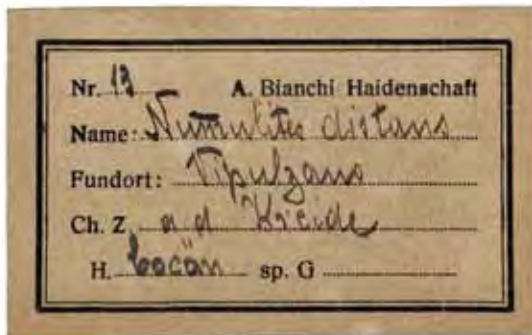 Nr. 13 A. Bianchi Haidenschaft
Name: Numulites distans
Fundort: Vipulzano
Ch. Z. a d Kreide
H. Eocän sp. G